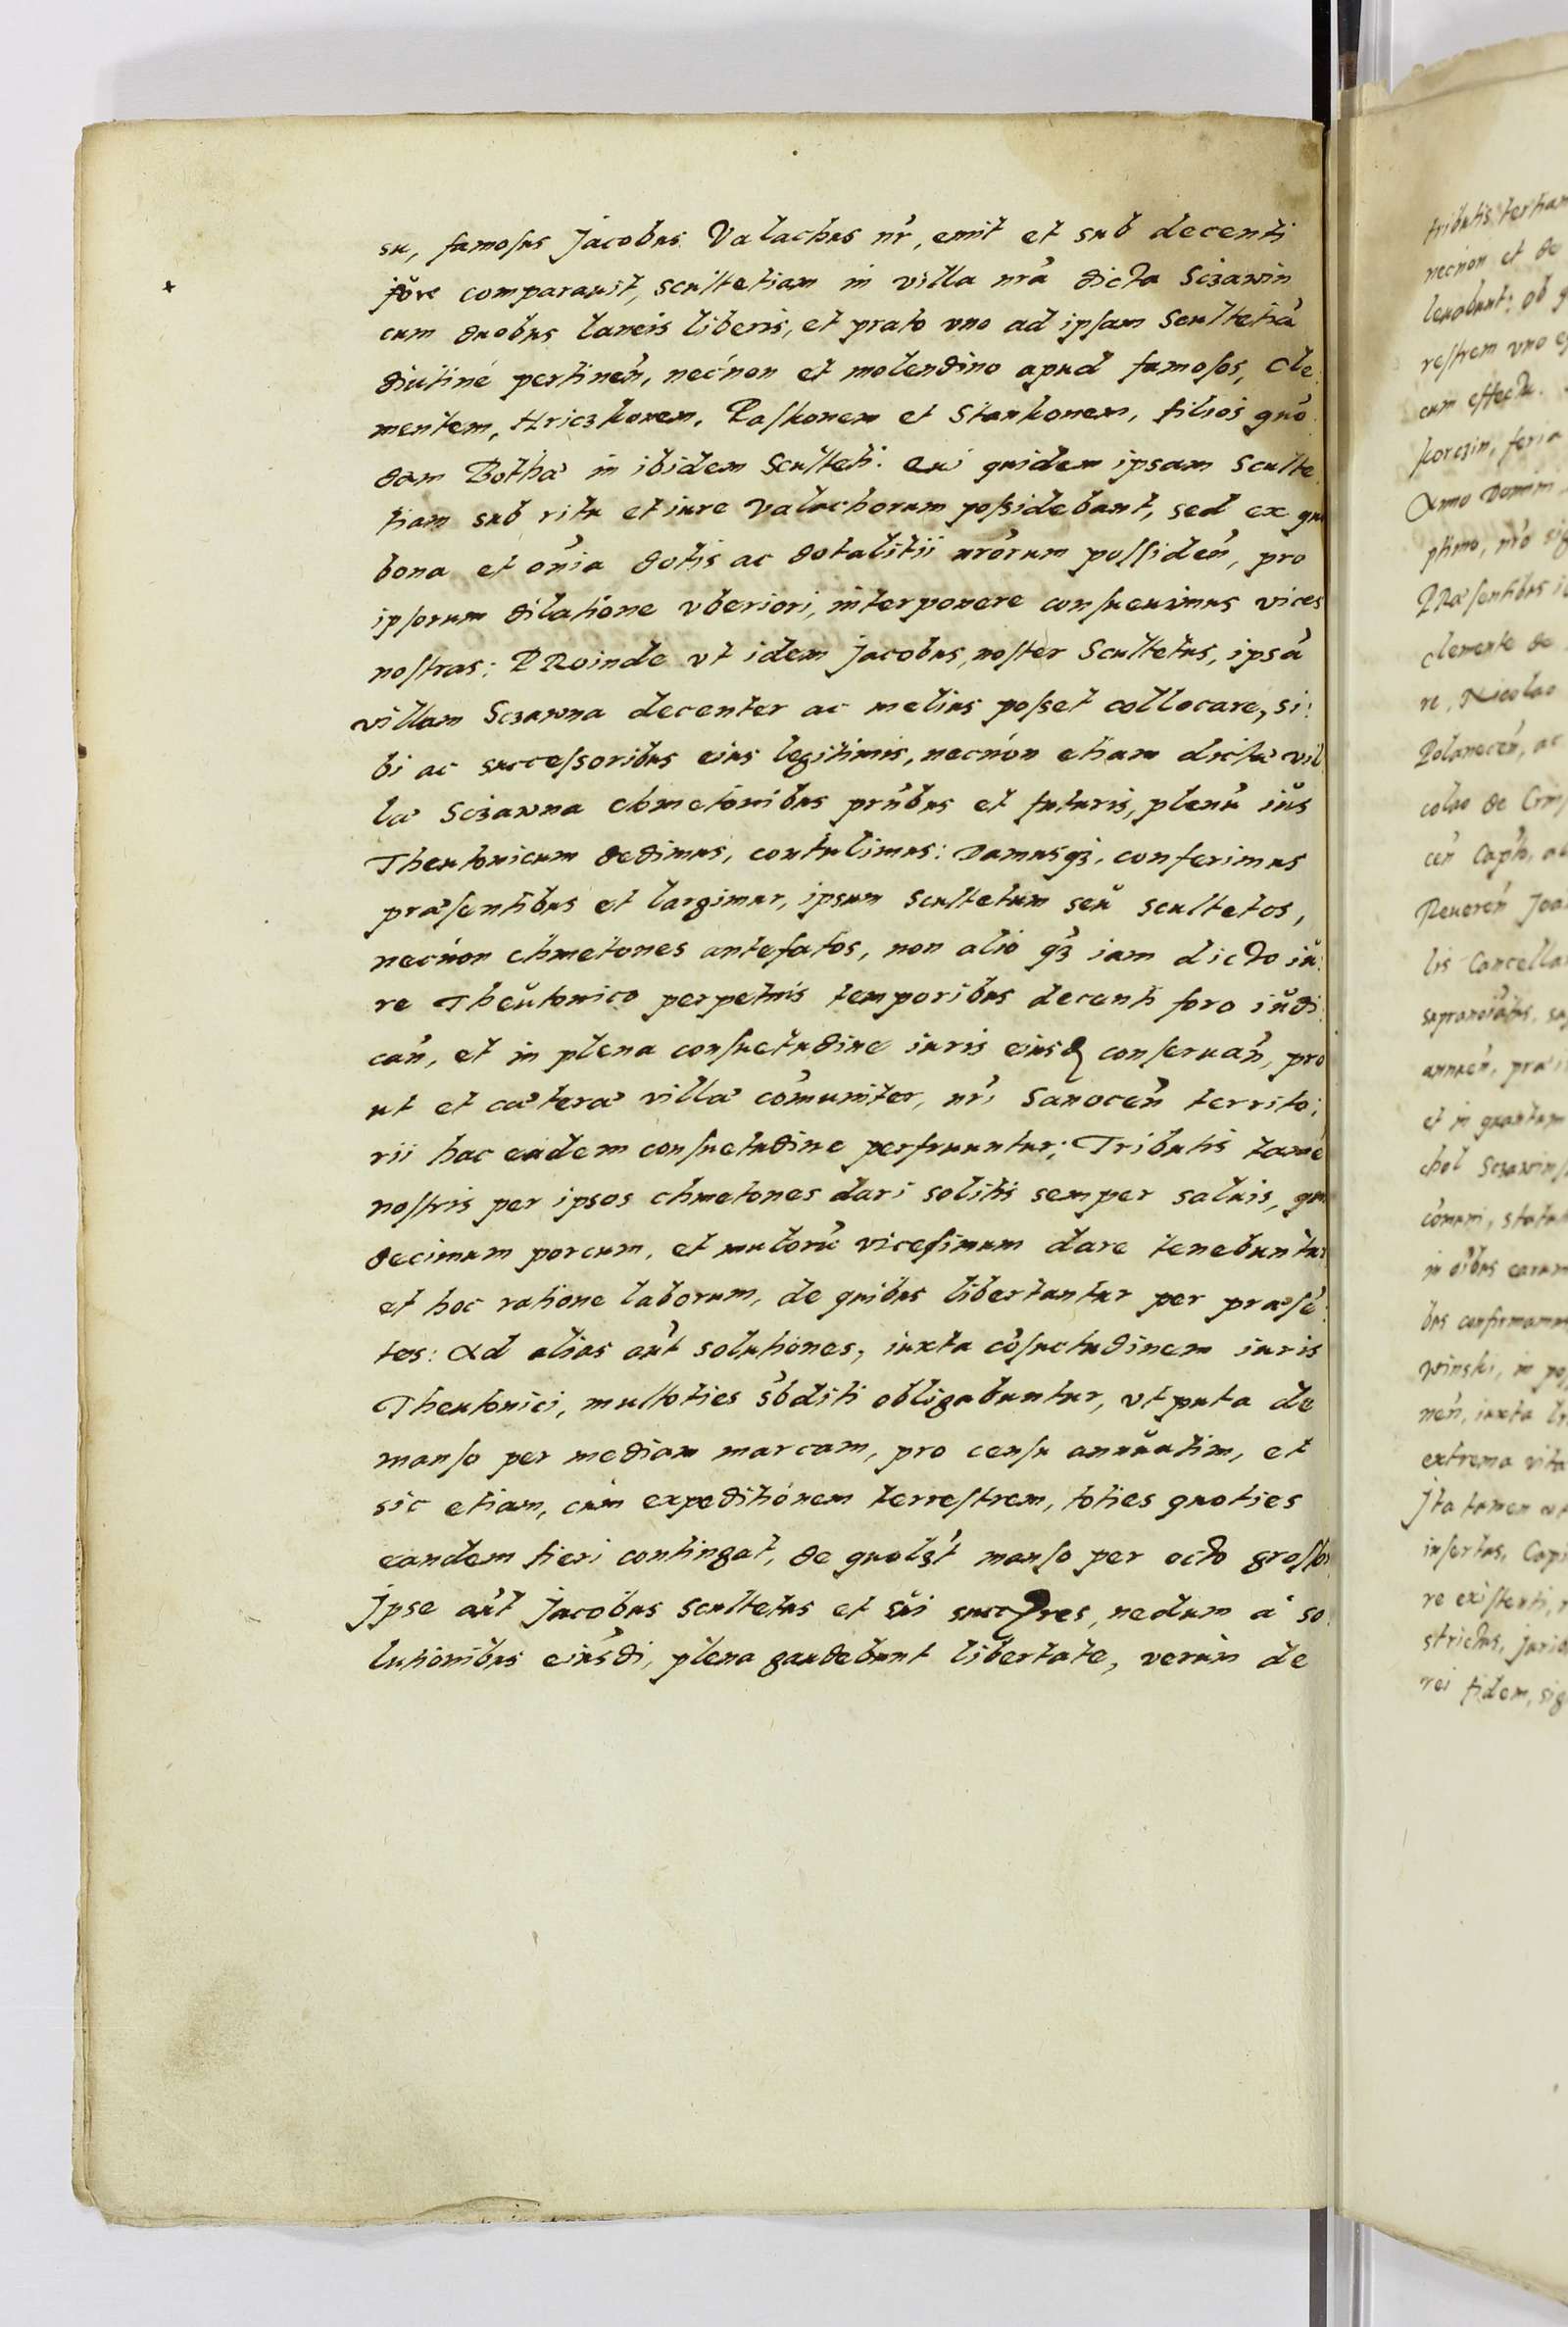 su, famosus Jacobus Valachus nr̃, emit et sub decenti
jŭre comparauit, scultetiam in villa nrã dicta Sczawin
cum duobus laneis liberis, et prato vno ad ipsam Scultetiã
diutinè pertineñ, necnon et molendino apud famosos, Cle:
mentem, Hriczkonem, Paskonem et Stankonem, filios quõ:
dam Bothæ in ibidem Sculteti: qui quidem ipsam Sculte:
tiam sub ritu et iure Valachorum possidebant, sed ex qu
bona et oĩa dotis ac dotalitii nrõrum possideñ, pro
ipsorum dilatione vberiori, interponere consueuimus vices
nostras: PRoinde vt idem Jacobus, noster Scultetus, ipsã
villam Sczawna decenter ac melius posset collocare, si:
bi ac successoribus eius legitimis, necnon etiam dictæ vil
læ Sczawna chmetonibus prñbus et futuris, plenũ iŭs
Theutonicum dedimus, contulimus: Damusq3, conferimus
præsentibus et largimur, ipsum scultetum seŭ scultetos,
necnon chmetones antefatos, non alio q̃3 iam dicto iŭ:
re Theŭtonico perpetuis temporibus decenti foro iŭdi:
cañ, et in plena consuetudine iuris eiusd̃ conseruañ, pro
ut et cæteræ villæ cõmuniter, nrĩ Sanoceñ territo:
rii hac eadem consuetudine perfruuntur; Tributis tamẽ
nostris per ipsos chmetones dari solitis semper saluis, qui
decimum porcum, et mutorũ vicesimum dare tenebuntur
et hoc ratione laborum, de quibus libertantur per præsẽ:
tes: Ad alias aũt solutiones, iuxta cõsuetudinem iuris
Theutonici, multoties sb̃diti obligabuntur, vt puta de
manso per mediam marcam, pro censu annŭatim, et
sic etiam, cùm expeditionem terrestrem, toties quoties
eandem fieri contingat, de quolib3t manso per octo grossos
Jpse aũt Jacobus scultetus et sŭi succ̃res, nedum à so:
lutionibus eiusd̃i, plena gaudebunt libertate, verùm de
tributis tertiam
necnon et de
leuabunt: ob q
restrem vno
cum effectu.
skorczin, feria
Anno Domini
ptimo, nrõ si
PRæsentibus
clemente de
re, Nicolao
Polaneceñ, ac
colao de
ceñ Capto,
Reuereñ Joa
lis Cancella
et in quantum
chol Sczawins
cõmuni, statut
in oĩbus earum
bus confirmamus
winski, in po
neñ, iuxta
extrema vita
Jta tamen
insertas, Capi
re existenti,
strictus, juri
rei fidem, sig